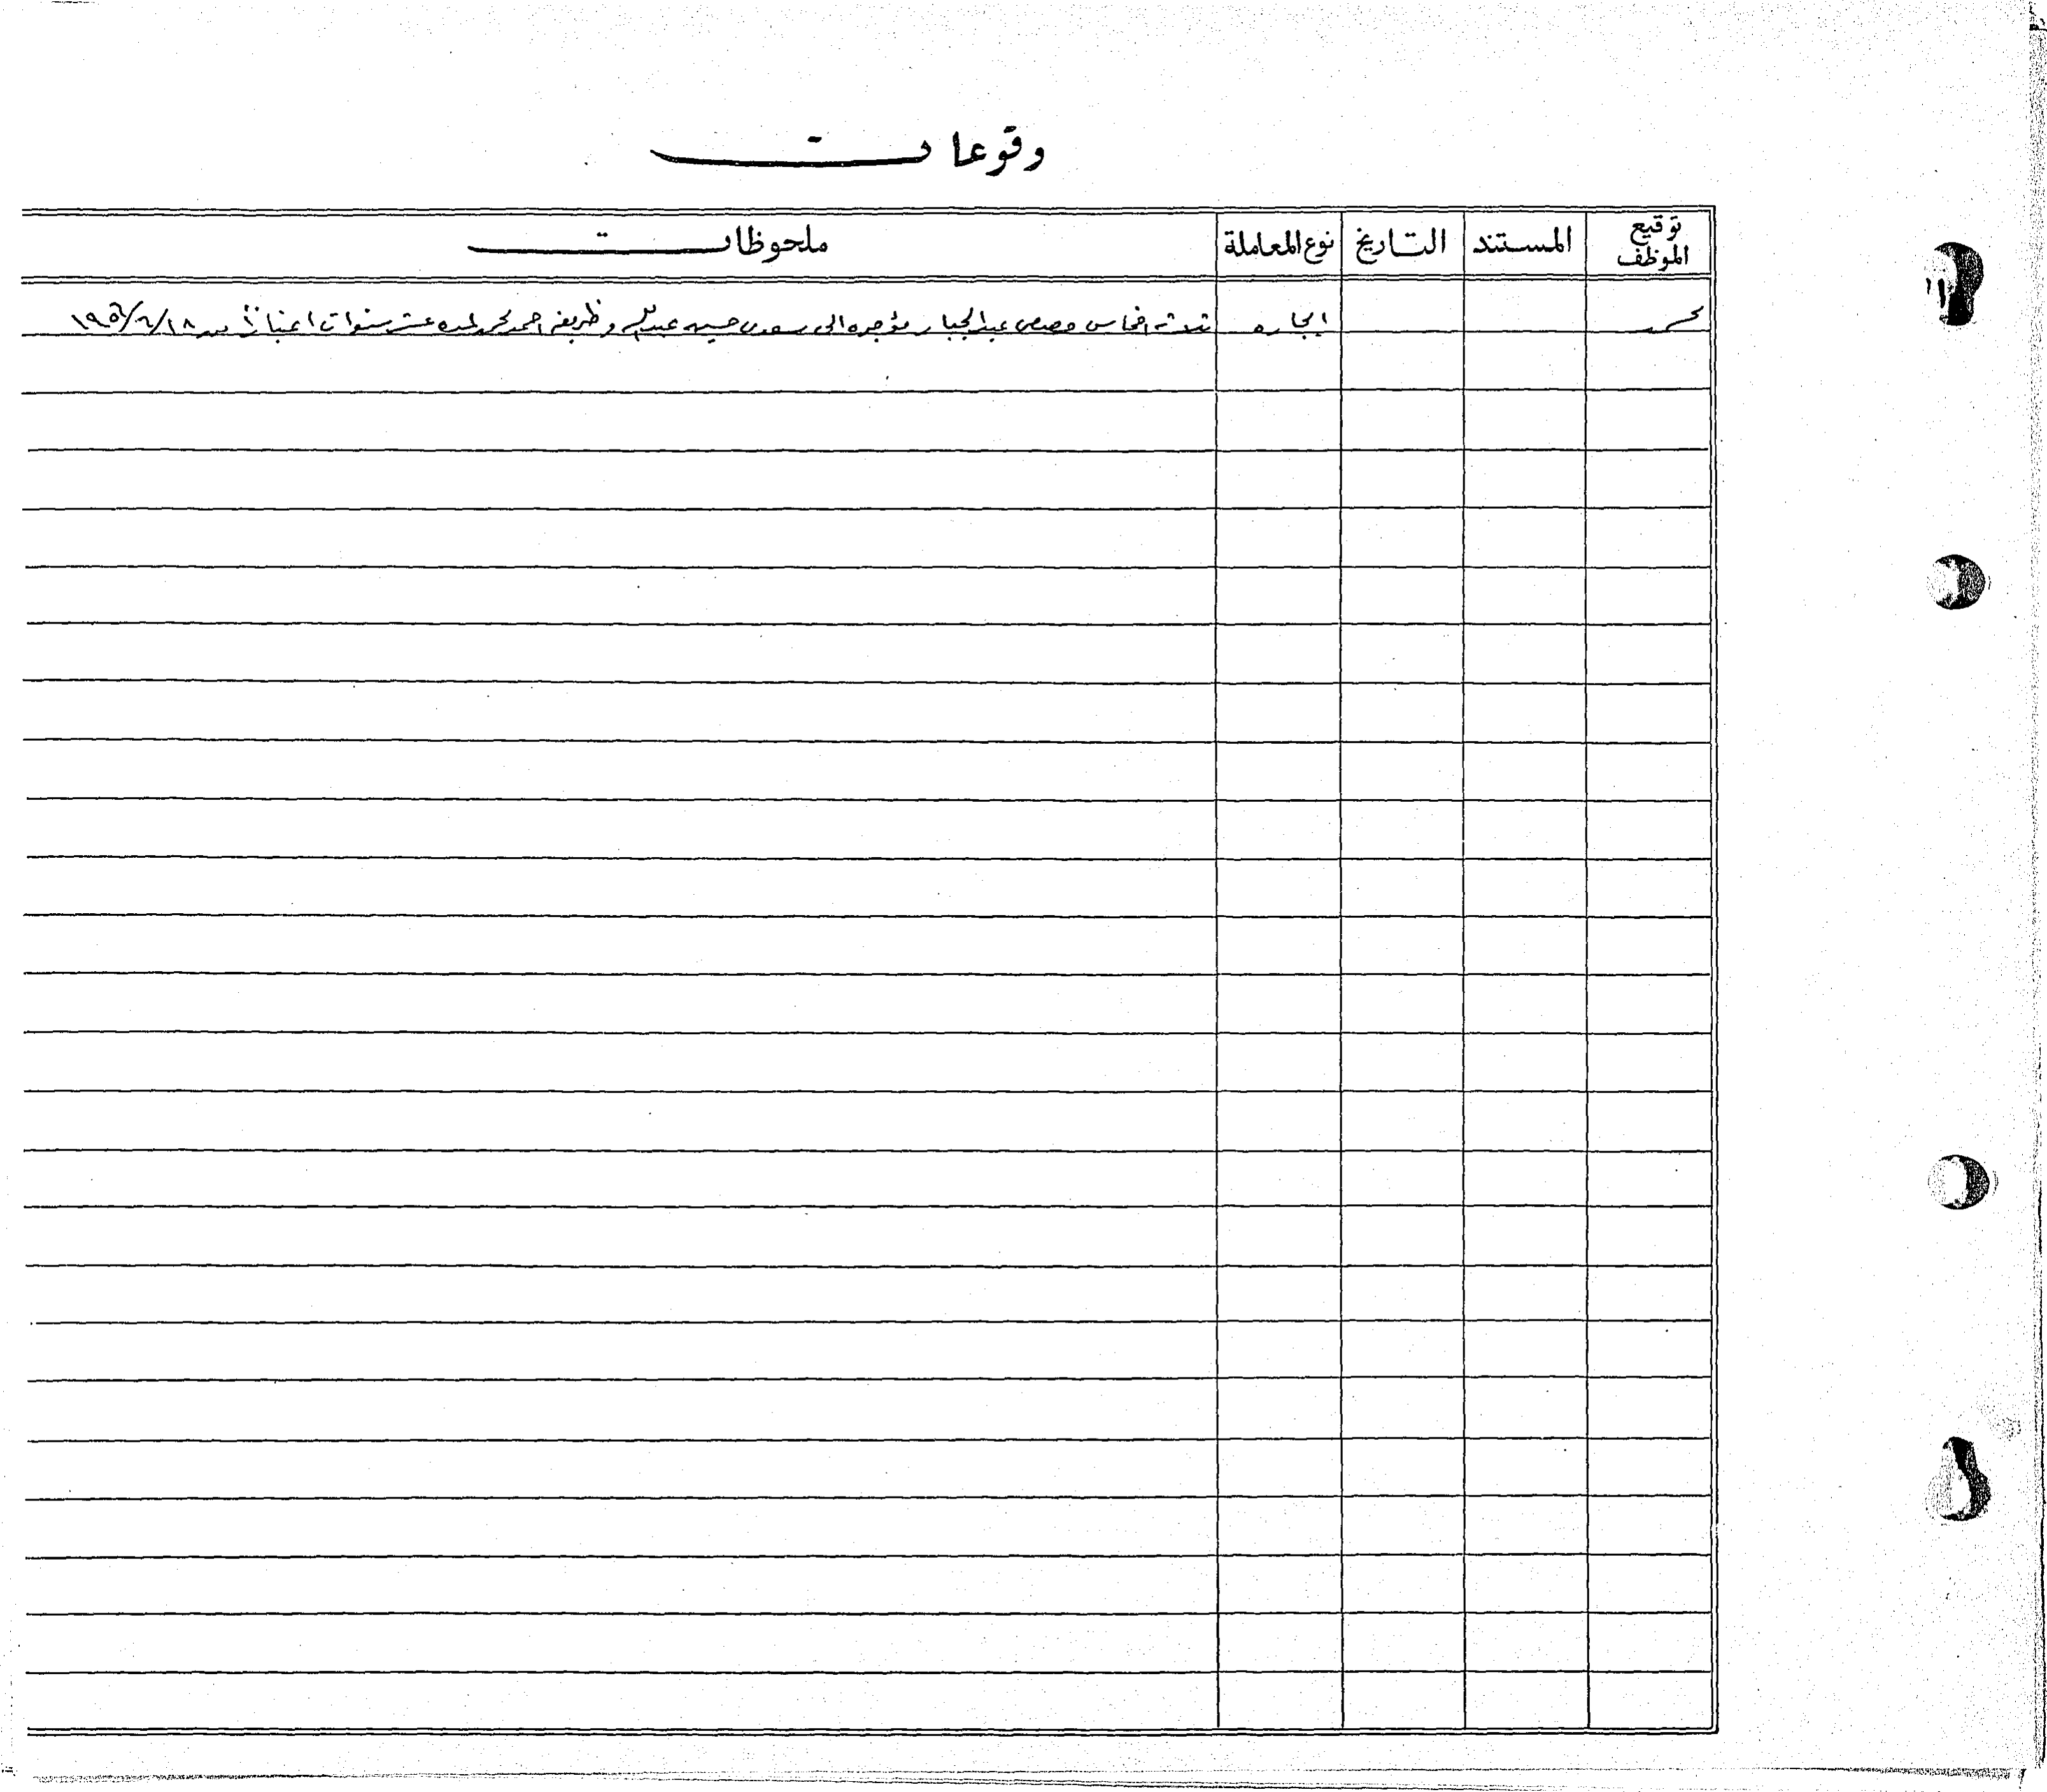 وقوعات
توقيع الموظف المستند التاريخ نوع المعاملة ملحوظات
ايجاره ثلاثة اخماس حصص عبدالجبار مؤجره الى سعدى حسين عبدالله وظريفه احمد محمد لمده عشر سنوات اعتباراً من ١٩٥٦/٦/١٨